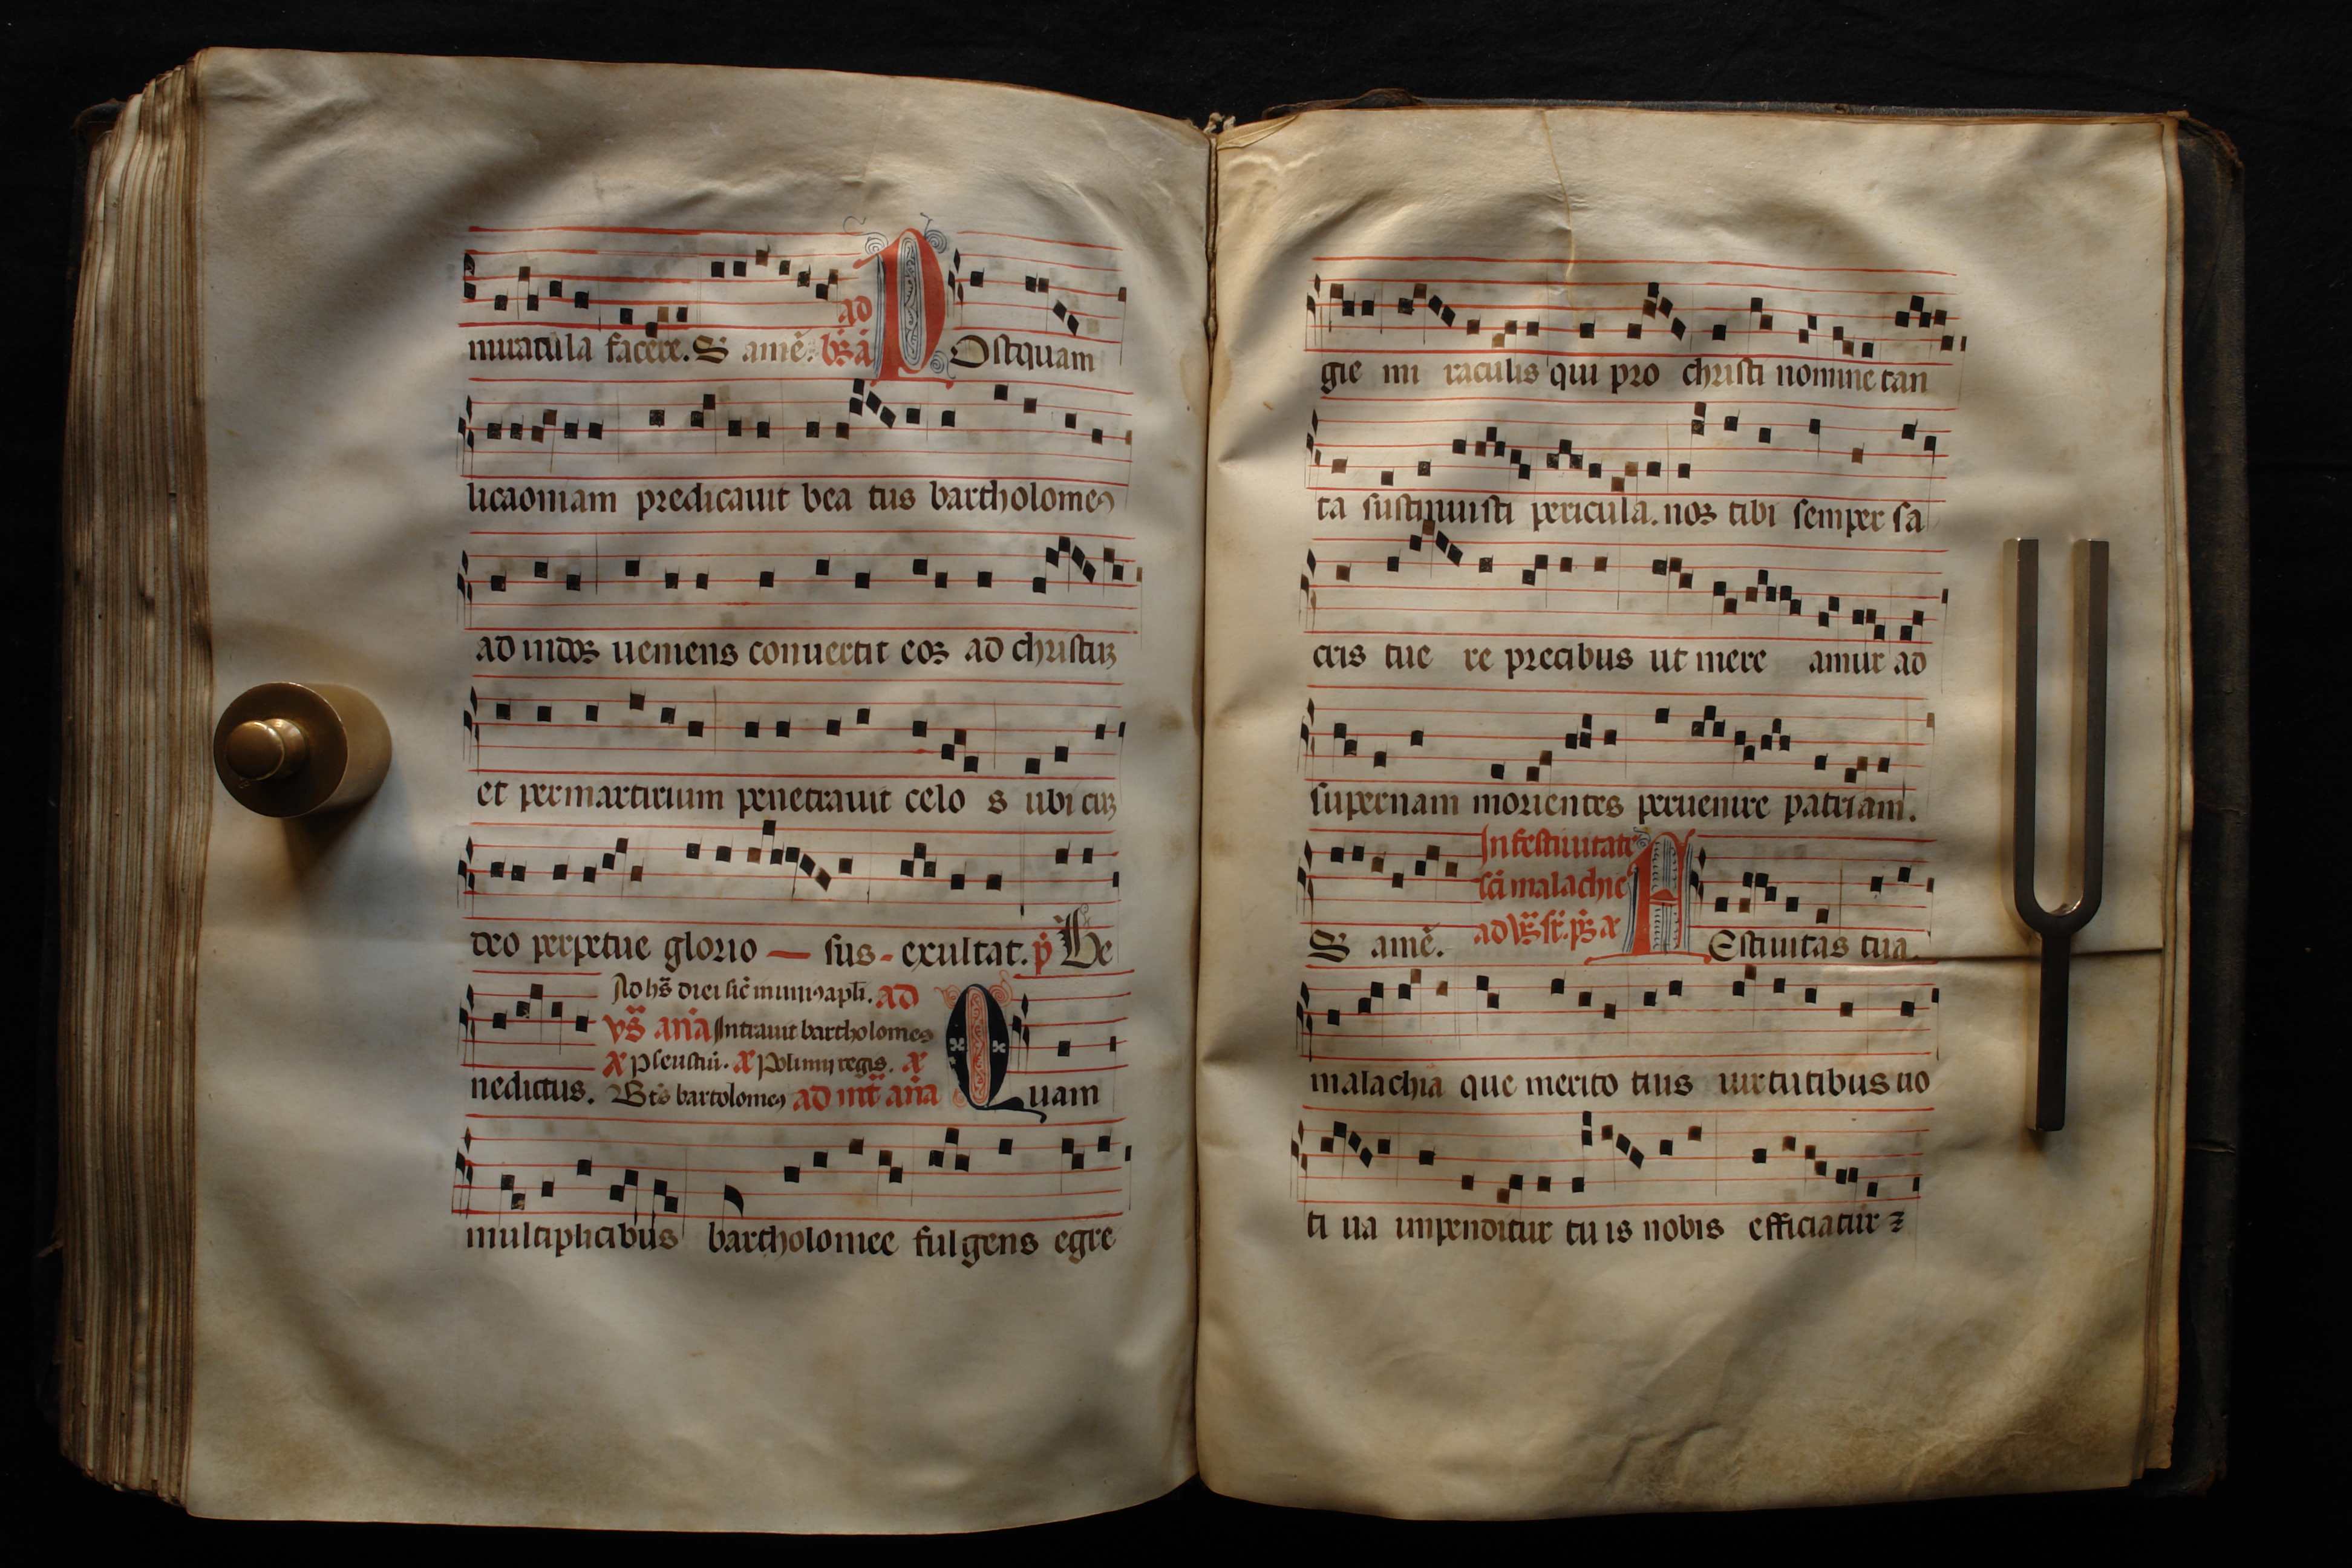 miracula facere. S amē. ad bꝫ ā Postquam
licaoniam predicauit bea tus bartholomeꝰ
ad indoꝫ ueniens conuertit eoꝫ ad christuꝫ
et per martirium penetrauit celo s ubi cuꝫ
deo perpetue glorio — sus - exultat. p̄ Be
nedictus.
Ad hꝰ diei sic̄ in uniꝰ apli. ad
vs̄ an̄a Intrauit bartholomeꝰ
Polimij regis.
Bt̄s bartolomeꝰ ad mt̄ an̄a Quam
multiplicibus bartholomee fulgens egre
gie mi raculis qui pro christi nomine tan
ta sustinuisti pericula. noꝫ tibi semper sa
cris tue re precibus ut mere amur ad
supernam morientes peruenire patriam.
S amē.
In festiuitate
sc̄i malachie
Festiuitas tua
malachia que merito tuis uirtutibus uo
ti ua inpenditur tu is nobis efficiatur ⁊